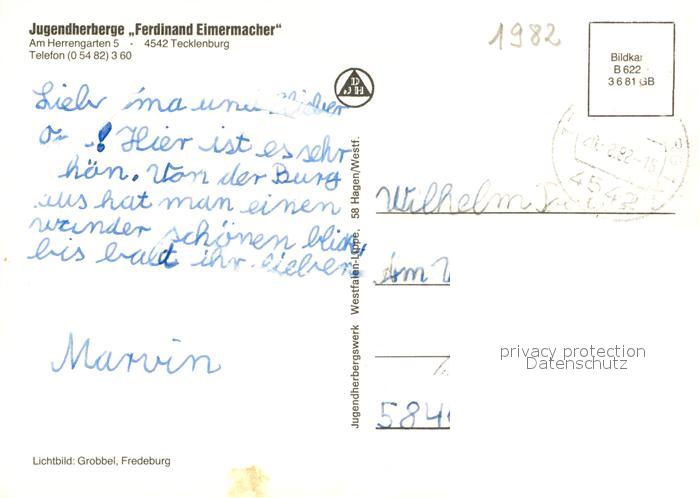 Jugendherberge „Ferdinand Eimermacher“
Am Herrengarten 5 - 4542 Tecklenburg
Telefon (0 54 82) 3 60
1982
Bildkar
B 622
3 6 81 GB
Liebe ma und lieber
o !Hier ist es sehr
hön. Von der Burg
aus hat man einen
wunder schönen blick
bis bald ihr lieben
Marvin
Jugendherbergswerk Westfalen-Lippe, 58 Hagen/Westf.
4542
Wilhelm
Am
584
privacy protection
Datenschutz
Lichtbild: Grobbel, Fredeburg